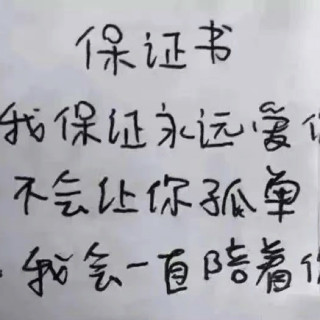 保证书
我保证永远爱你
不会让你孤单
我会一直陪着你